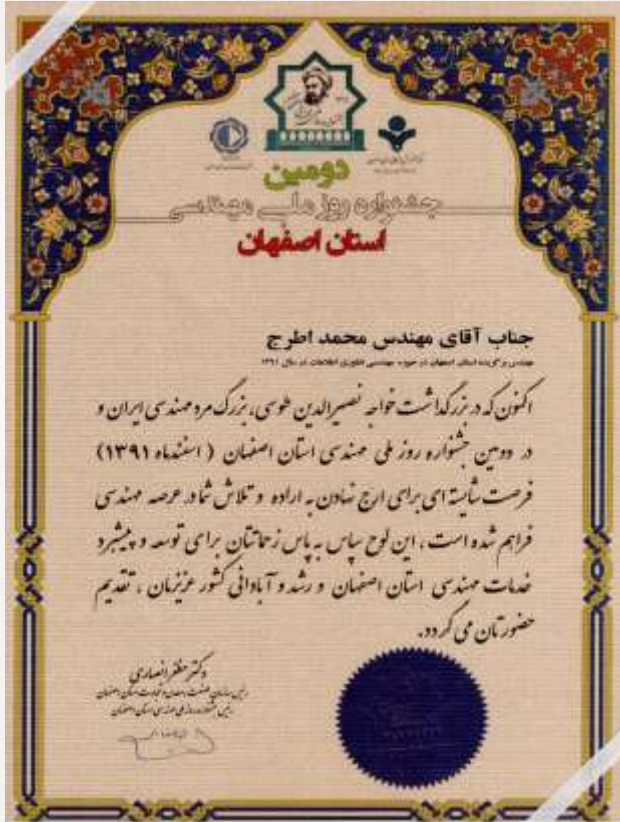 دومین
جشنواره روز ملی مهندسی
استان اصفهان
جناب آقای مهندس محمد اطرج
مهندس برگزیده استان اصفهان در حوزه مهندسی فناوری اطلاعات در سال ۱۳۹۱
اکنون که در بزرگداشت خواجه نصیرالدین طوسی، بزرگ مرد مهندسی ایران و
در دومین جشنواره روز ملی مهندسی استان اصفهان (اسفندماه ۱۳۹۱)
فرصت شایسته ای برای ارج نهادن به اراده و تلاش شما در عرصه مهندسی
فراهم شده است، این لوح سپاس به پاس زحماتتان برای توسعه و پیشبرد
خدمات مهندسی استان اصفهان و رشد و آبادانی کشور عزیزمان، تقدیم
حضورتان می گردد.
دکتر مظفر انصاری
رئیس سازمان صنعت، معدن و تجارت استان اصفهان
رئیس جشنواره روز ملی مهندسی استان اصفهان